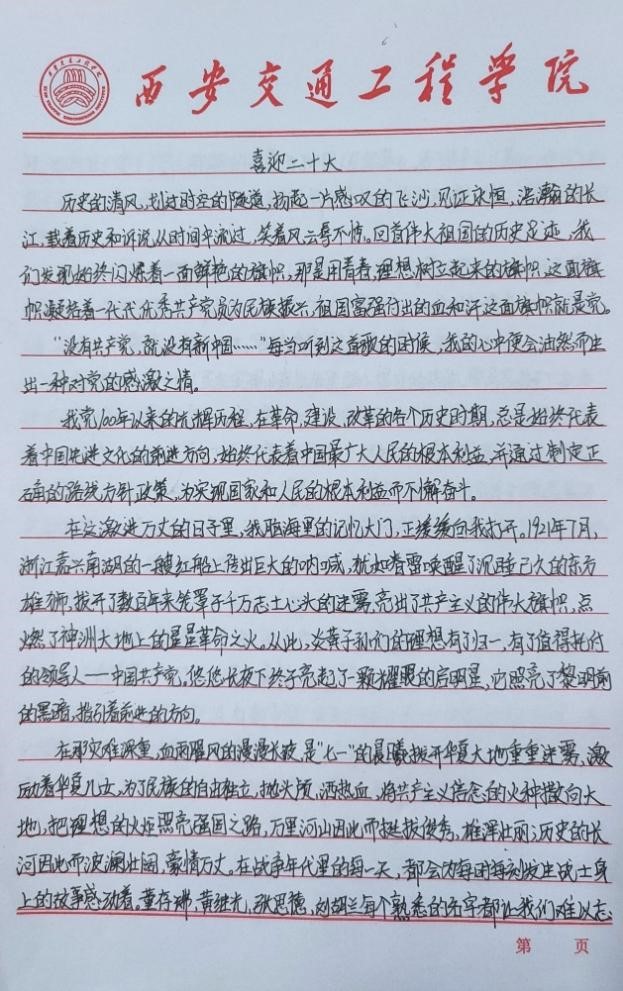 西安交通工程学院
喜迎二十大
历史的清风,划过时空的隧道,扬起一片感叹的飞沙,见证永恒,浩瀚的长
江,载着历史和诉说从时间中流过,笑着风云辱不惊。回首伟大祖国的历史足迹,我
们发现始终闪烁着一面鲜艳的旗帜,那是用青春,理想树立起来的旗帜,这面旗
帜凝结着一代代优秀共产党员为民族振兴,祖国富强付出的血和汗这面旗帜就是党。
“没有共产党,就没有新中国……”每当听到这首歌的时候,我的心中便会油然而生
出一种对党的感激之情。
我党100年以来的光辉历程,在革命,建设,改革的各个历史时期,总是始终代表
着中国先进文化的前进方向,始终代表着中国最广大人民的根本利益,并通过制定正
确的路线方针政策,为实现国家和人民的根本利益而不懈奋斗。
在这激进万丈的日子里,我脑海里的记忆大门,正缓缓向我打开。1921年7月,
浙江嘉兴南湖的一艘红船上传出巨大的呐喊,犹如春雷唤醒了沉睡已久的东方
雄狮,拨开了数百年来笼罩于千万志士心头的迷雾,亮出了共产主义的伟大旗帜,点
燃了神洲大地上的星星革命之火。从此,炎黄子孙们的理想有了归一,有了值得托付
的领导人——中国共产党。悠悠长夜下终于亮起了一颗耀眼的启明星,它照亮了黎明前
的黑暗,指引着前进的方向。
在那灾难深重,血雨腥风的漫漫长夜,是“七一”的晨曦拨开华夏大地重重迷雾,激
励着华夏儿女,为了民族的自由独立,抛头颅,洒热血,将共产主义信念的火种撒向大
地,把理想的火炬照亮强国之路,万里河山因此而挺拔俊秀,雄浑壮丽;历史的长
河因此而波澜壮阔,豪情万丈。在战争年代里的每一天,都会为每时每刻发生战士身
上的故事感动着。董存瑞,黄继光,张思德,刘胡兰每个熟悉的名字都让我们难以忘
第 页